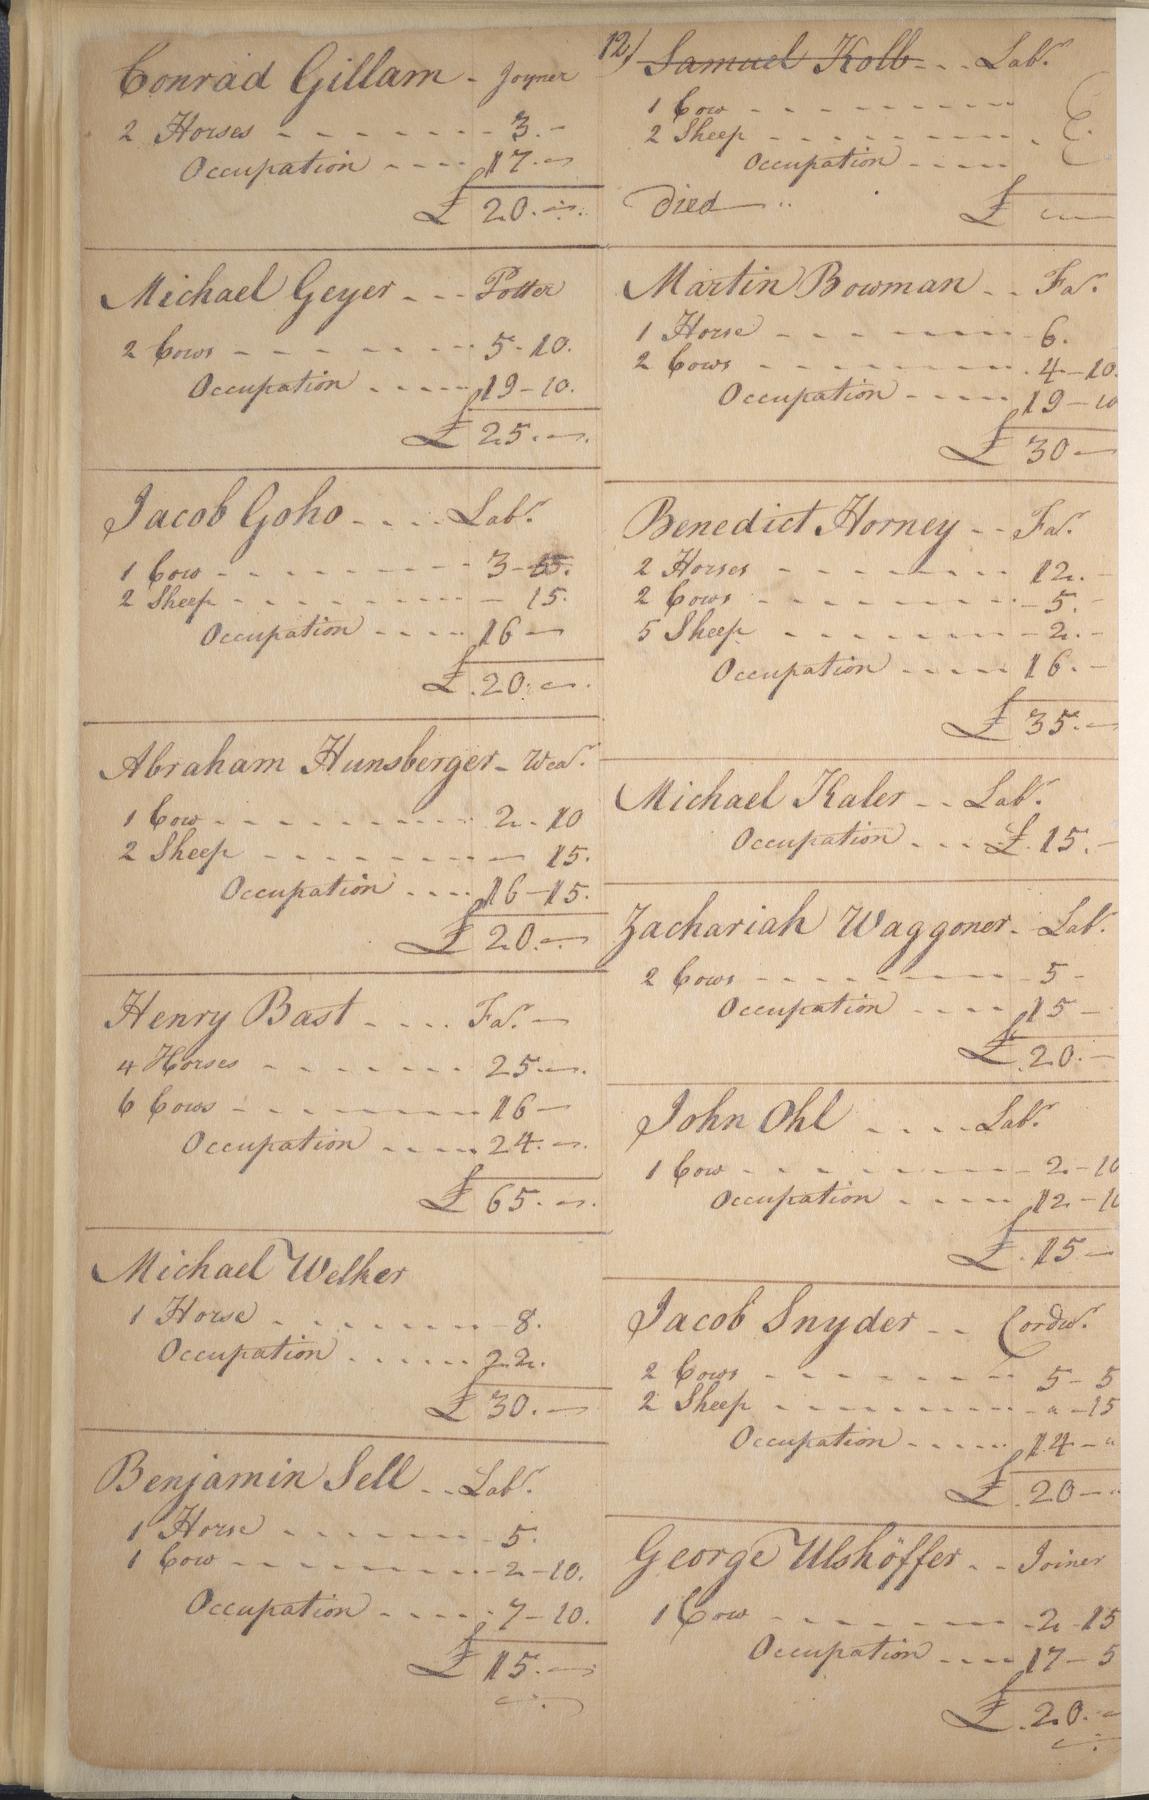 Conrad Gillam - Joyner
2 Horses - - - - - - - 3. -
Occupation - - - - 17. -
£ 20. -
Michael Geyer - - - Potter
2 Cows - - - - - - - 5 - 10.
Occupation - - - - 19 - 10.
£ 25. -
Jacob Goho - - - - Labr.
1 Cow - - - - - - - 3 -
2 Sheep - - - - - - - 15.
Occupation - - - - 16 -
£ 20. -
Abraham Hunsberger - Wear.
1 Cow - - - - - - - 2 - 10
2 Sheep - - - - - - - 15.
Occupation - - - - 16 - 15.
£ 20. -
Henry Bast - - - - Far. -
4 Horses - - - - - - 25. -
6 Cows - - - - - - - 16 -
Occupation - - - - 24. -
£ 65. -
Michael Welker
1 Horse - - - - - - - 8.
Occupation - - - - - 22.
£ 30. -
Benjamin Sell - - Labr.
1 Horse - - - - - - 5.
1 Cow - - - - - - - 2 - 10.
Occupation - - - - 7 - 10.
£ 15. -
12) Samuel Kolb - - - Labr.
1 Cow - - - - - - - -
2 Sheep - - - - - - - -
Occupation - - - -
Died - £ -
Martin Bowman - - Far.
1 Horse - - - - - - - 6.
2 Cows - - - - - - - 4 - 10.
Occupation - - - - 19 - 10
£ 30 -
Benedict Horney - - Far.
2 Horses - - - - - - - 12. -
2 Cows - - - - - - - 5. -
5 Sheep - - - - - - - 2. -
Occupation - - - - - 16. -
£ 35. -
Michael Kaler - - Labr.
Occupation - - - £ 15. -
Zachariah Waggoner - Labr.
2 Cows - - - - - - - 5 -
Occupation - - - - 15 -
£ 20. -
John Ohl - - - - Labr.
1 Cow - - - - - - - 2 - 10
Occupation - - - - 12 - 10
£ 15 -
Jacob Snyder - - Cordwr.
2 Cows - - - - - - - 5 - 5
2 Sheep - - - - - - - " - 15
Occupation - - - - - 14 - "
£ 20 -
George Ulshöffer - - Joiner
1 Cow - - - - - - - 2 - 15
Occupation - - - - 17 - 5
£ 20. -